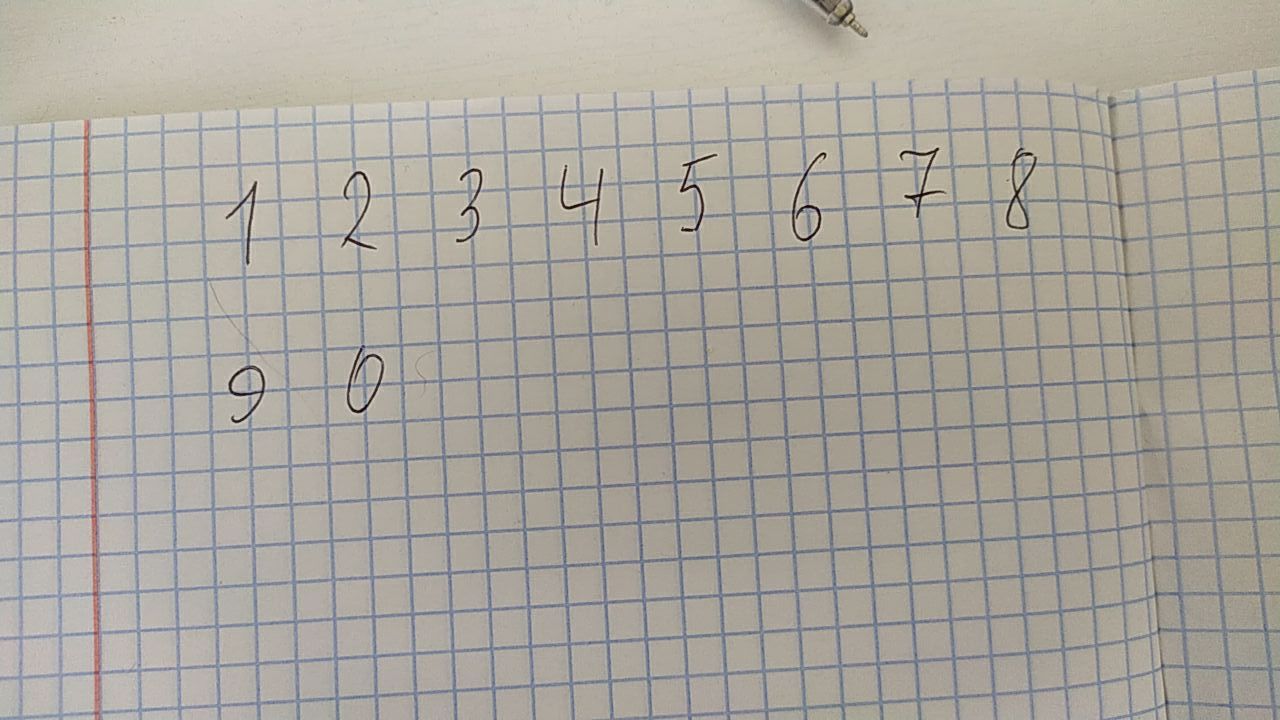 1 2 3 4 5 6 7 8
9 0